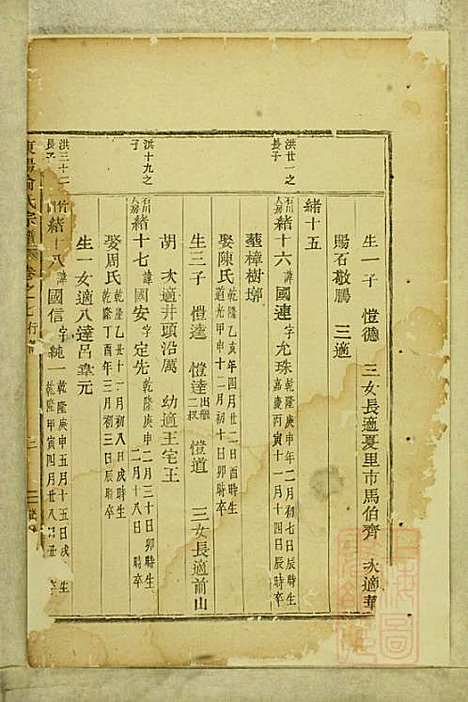 生一子 愷德 三女長適夏里市馬伯齊 次適華
陽石敬鵬 三適
緒十五
洪廿一之
長子
石川
人房
緒十六 諱國連 字允珠 乾隆庚申年二月初七日辰時生
嘉慶丙寅十一月十四日辰時卒
葬樟樹塚
娶陳氏 乾隆乙亥年四月廿二日酉時生
道光甲申十二月初十日卯時卒
生三子 愷遠 愷達 出繼二叔 愷道 三女長適前山
胡 次適井頭沿厲 幼適王宅王
洪十九之
子
石川
人房
緒十七 諱國安 字定先 乾隆庚申二月三十日卯時生
二月十八日 時卒
娶周氏 乾隆乙丑十一月初八日戌時生
乾隆丁酉年三月初三日辰時卒
生一女適八達呂堯元
洪三十二
長子
緒十八 諱國信 字純一 乾隆庚申五月十五日戌 生
乾隆甲寅四月廿八日丑
氏宗譜 卷之